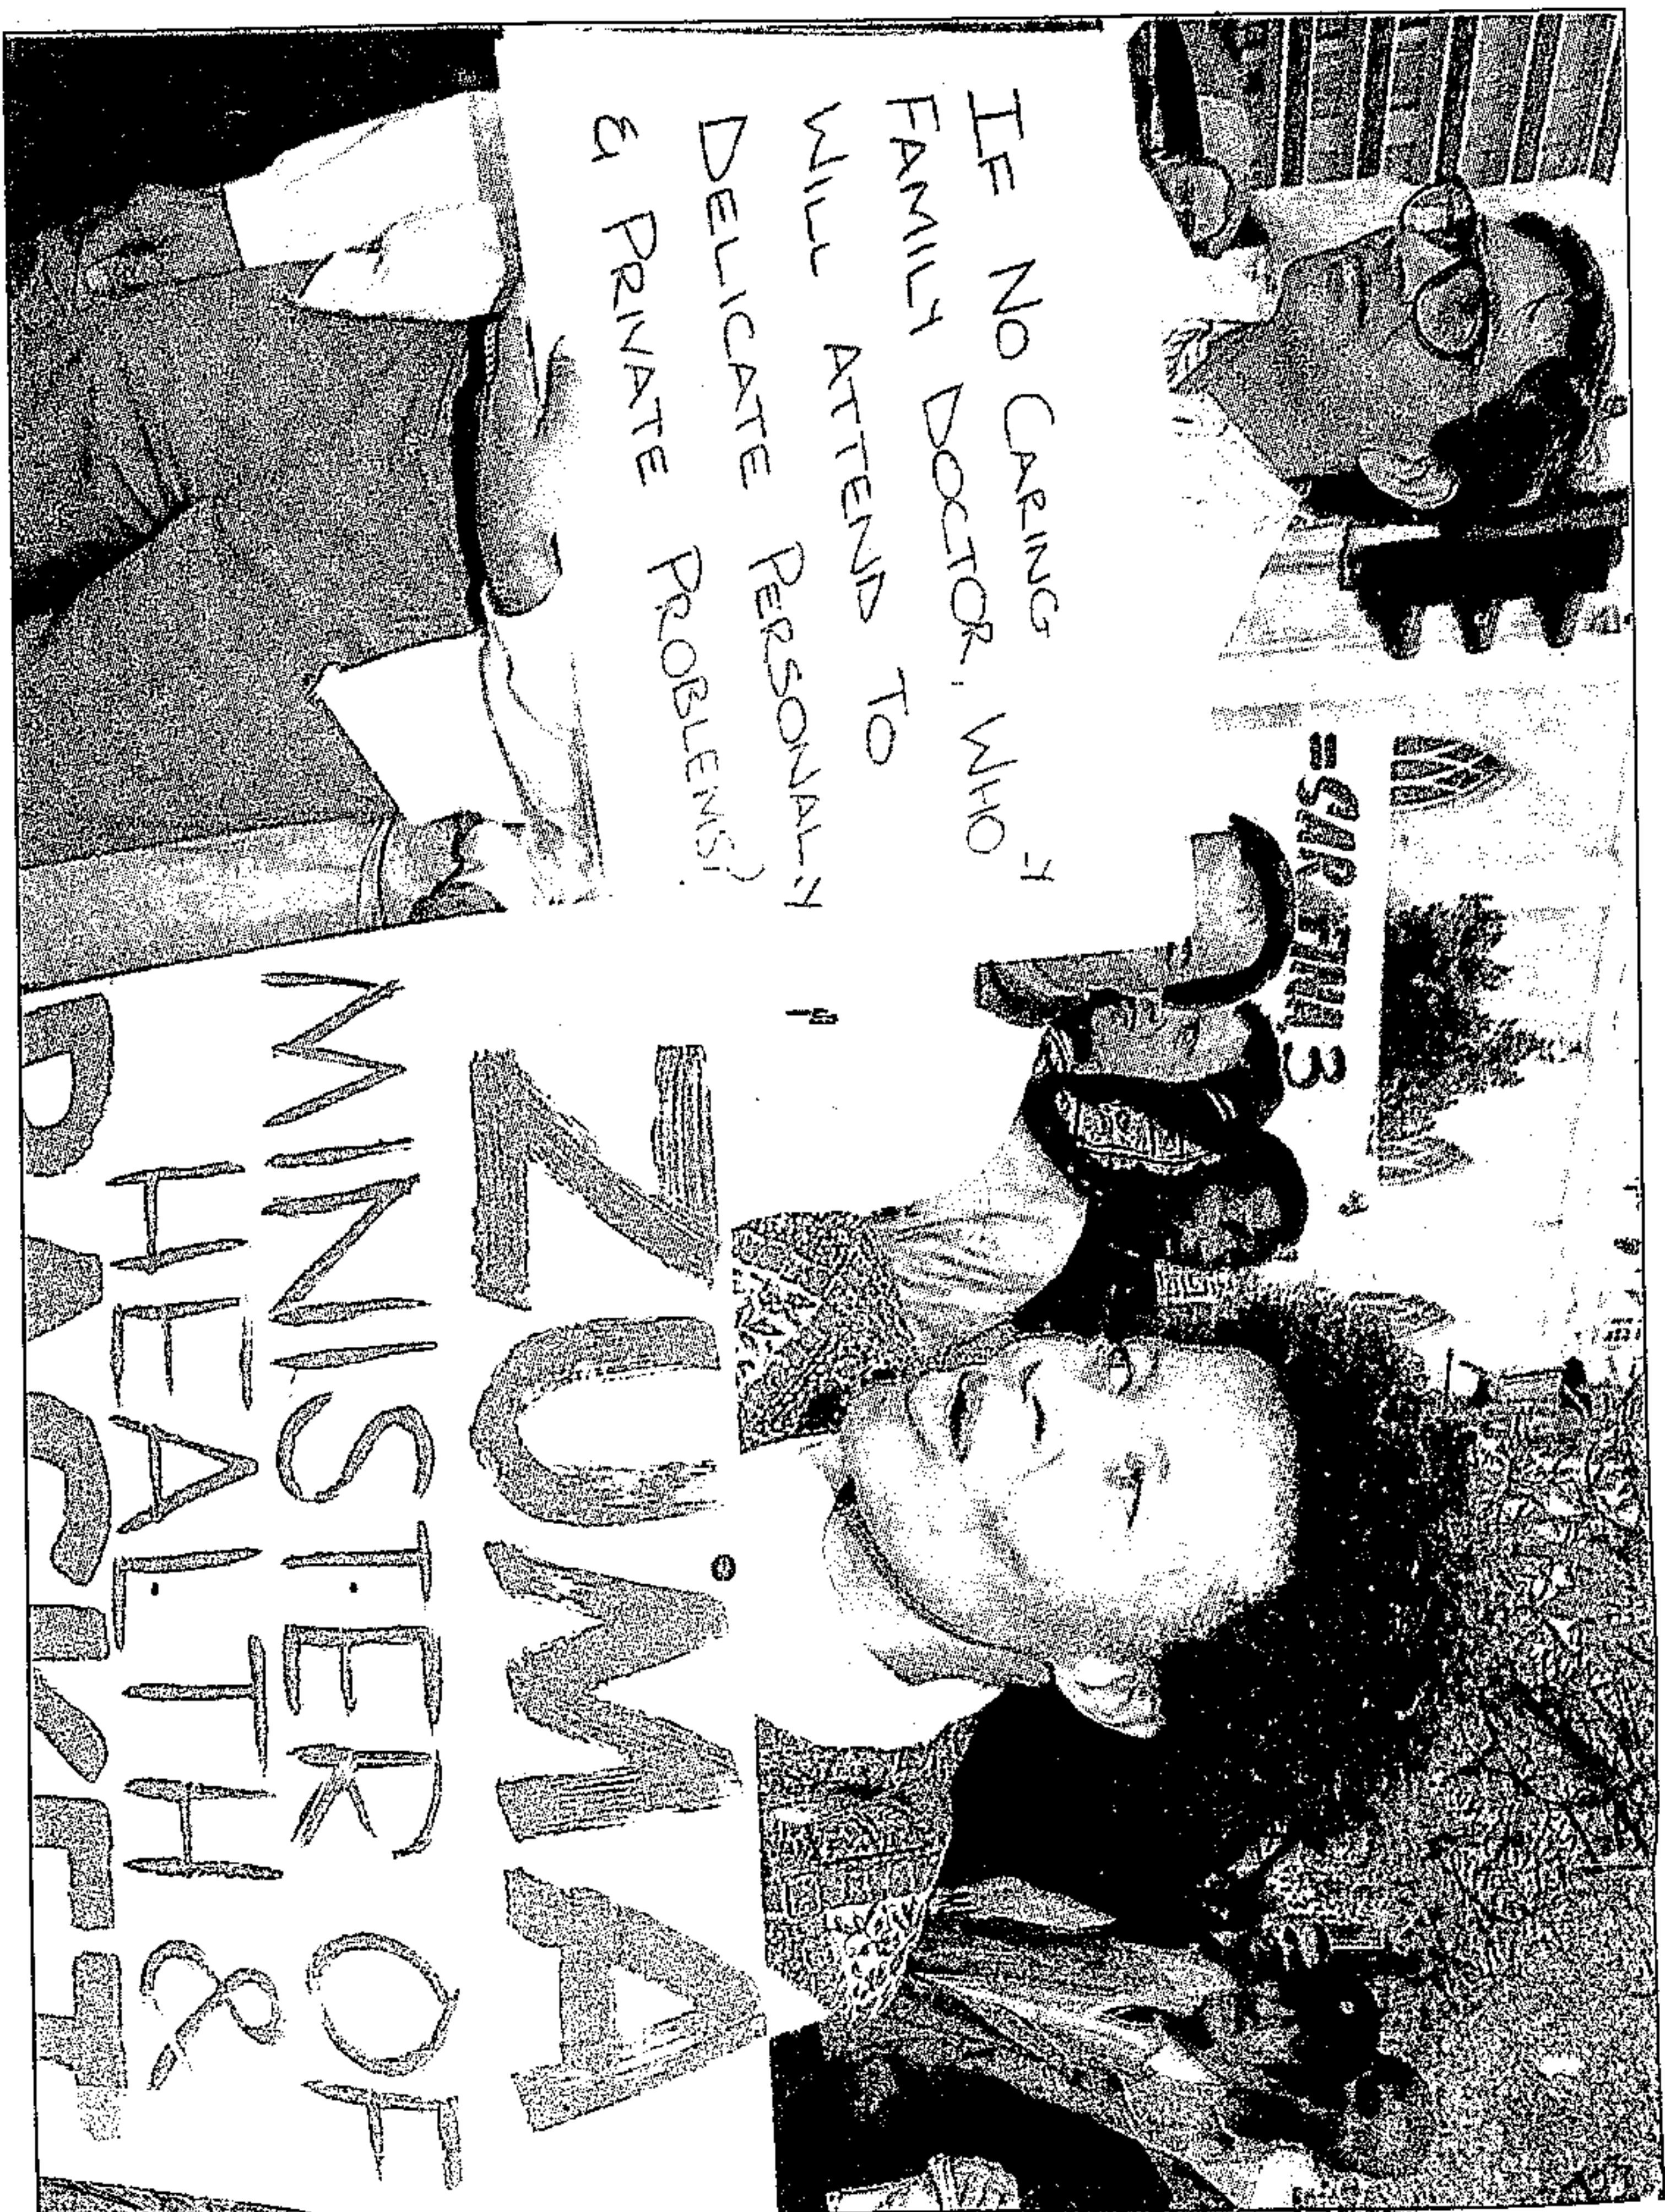 IF NO CARING
FAMILY DOCTOR. WHO
WILL ATTEND TO
DELICATE PERSONALLY
& PRIVATE PROBLEMS?
ZUMA
MINISTER OF
HEALTH &